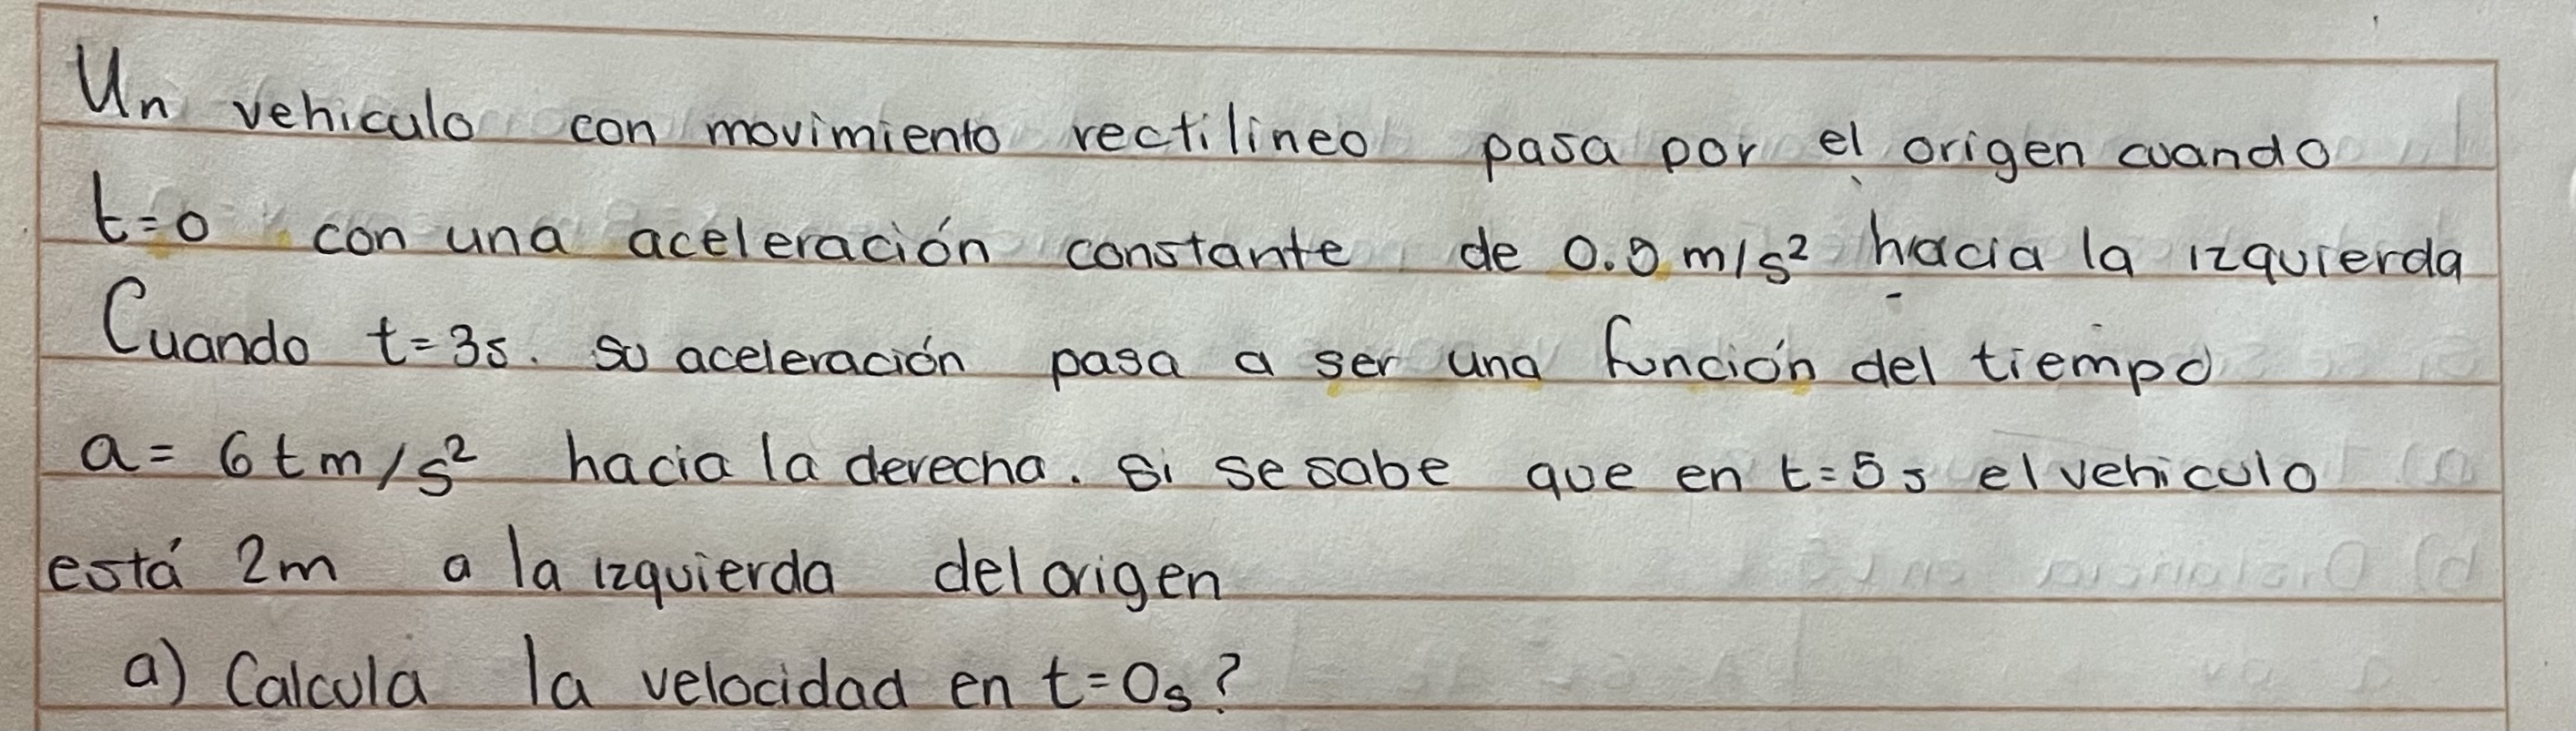 Un vehiculo con movimiento rectilineo pasa por el origen cuando
t=0 con una aceleración constante de 0.5 m/s² hacia la izquierda
Cuando t=3s. su aceleración pasa a ser una función del tiempo
a= 6t m/s² hacia la derecha. Si se sabe que en t=5s el vehiculo
está 2m a la izquierda del origen
a) Calcula la velocidad en t=0s?